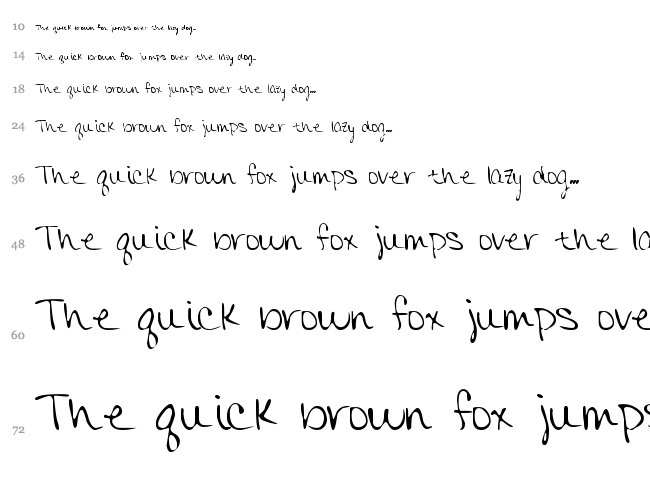 10 The quick brown fox jumps over the lazy dog...
14 The quick brown fox jumps over the lazy dog...
18 The quick brown fox jumps over the lazy dog...
24 The quick brown fox jumps over the lazy dog...
36 The quick brown fox jumps over the lazy dog...
48 The quick brown fox jumps over the la
60 The quick brown fox jumps ove
72 The quick brown fox jumps